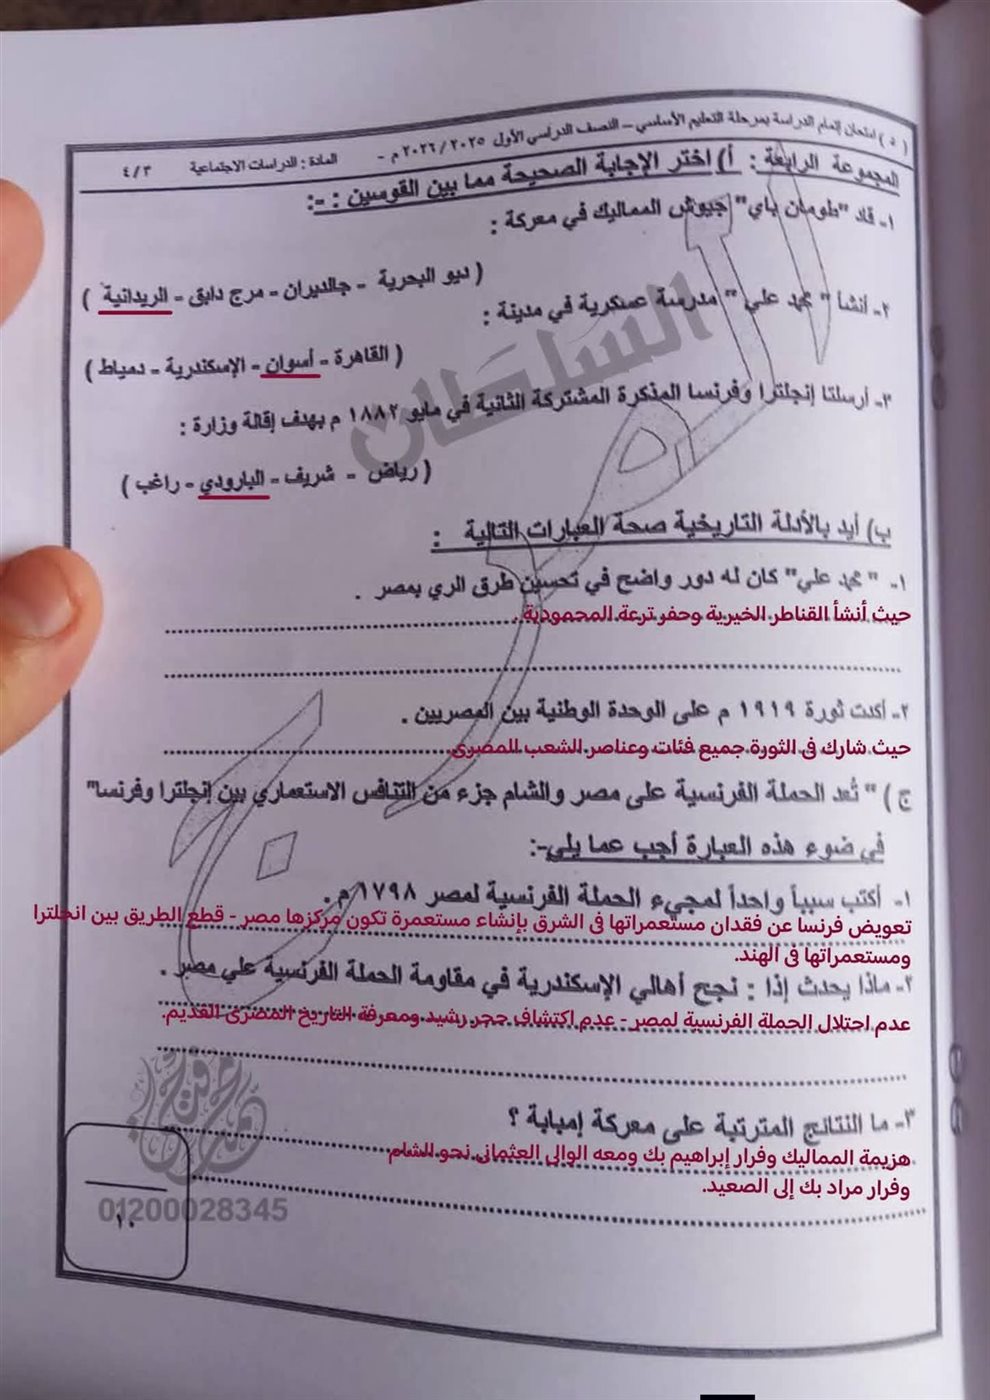 ( ٥ ) امتحان إتمام الدراسة بمرحلة التعليم الأساسي – النصف الدراسي الأول ٢٠٢٥ / ٢٠٢٦ م - المادة : الدراسات الاجتماعية ٤/٣
المجموعة الرابعة : أ) اختر الإجابة الصحيحة مما بين القوسين : -:
١- قاد "طومان باي" جيوش المماليك في معركة :
( ديو البحرية - جالديران - مرج دابق - الريدانية )
٢- أنشأ " محمد علي " مدرسة عسكرية في مدينة :
( القاهرة - أسوان - الإسكندرية - دمياط )
٣- أرسلتا إنجلترا وفرنسا المذكرة المشتركة الثانية في مايو ١٨٨٢ م بهدف إقالة وزارة :
( رياض - شريف - البارودي - راغب )
ب) أيد بالأدلة التاريخية صحة العبارات التالية :
١- " محمد علي" كان له دور واضح في تحسين طرق الري بمصر .
حيث أنشأ القناطر الخيرية وحفر ترعة المحمودية.
٢- أكدت ثورة ١٩١٩ م على الوحدة الوطنية بين المصريين .
حيث شارك فى الثورة جميع فئات وعناصر الشعب المصرى.
ج ) " تُعد الحملة الفرنسية على مصر والشام جزء من التنافس الاستعماري بين إنجلترا وفرنسا"
في ضوء هذه العبارة أجب عما يلي-:
١- أكتب سبباً واحداً لمجيء الحملة الفرنسية لمصر ١٧٩٨ م .
تعويض فرنسا عن فقدان مستعمراتها فى الشرق بإنشاء مستعمرة تكون مركزها مصر - قطع الطريق بين انجلترا
ومستعمراتها فى الهند.
٢- ماذا يحدث إذا : نجح أهالي الإسكندرية في مقاومة الحملة الفرنسية علي مصر .
عدم احتلال الحملة الفرنسية لمصر - عدم اكتشاف حجر رشيد ومعرفة التاريخ المصرى القديم.
٣- ما النتائج المترتبة على معركة إمبابة ؟
هزيمة المماليك وفرار إبراهيم بك ومعه الوالى العثمانى نحو الشام
وفرار مراد بك إلى الصعيد.
السلطان
01200028345
١٠